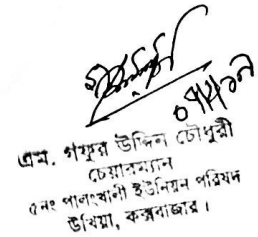 এম. গফুর উদ্দিন চৌধুরী
চেয়ারম্যান
৫নং পালংখালী ইউনিয়ন পরিষদ
উখিয়া, কক্সবাজার।